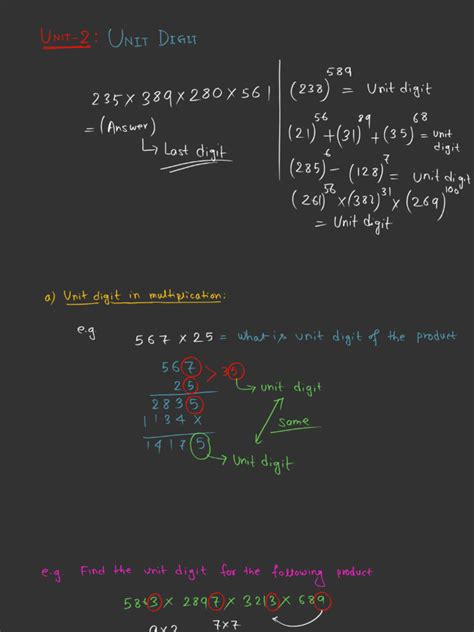 UNIT-2: UNIT DIGIT
235 × 389 × 280 × 561
= (Answer)
↳ Last digit
(238)^589 = Unit digit
(21)^56 + (31)^89 + (35)^68 = unit digit
(285)^6 - (128)^7 = Unit digit
(261)^56 × (382)^31 × (269)^100
= Unit digit
a) Unit digit in multiplication:
e.g
567 × 25 = what is unit digit of the product
567
25 > 35
→ unit digit
2835
1134×
Same
14175
→ Unit digit
e.g Find the unit digit for the following product
5843 × 2897 × 3213 × 689
9×3
7×7